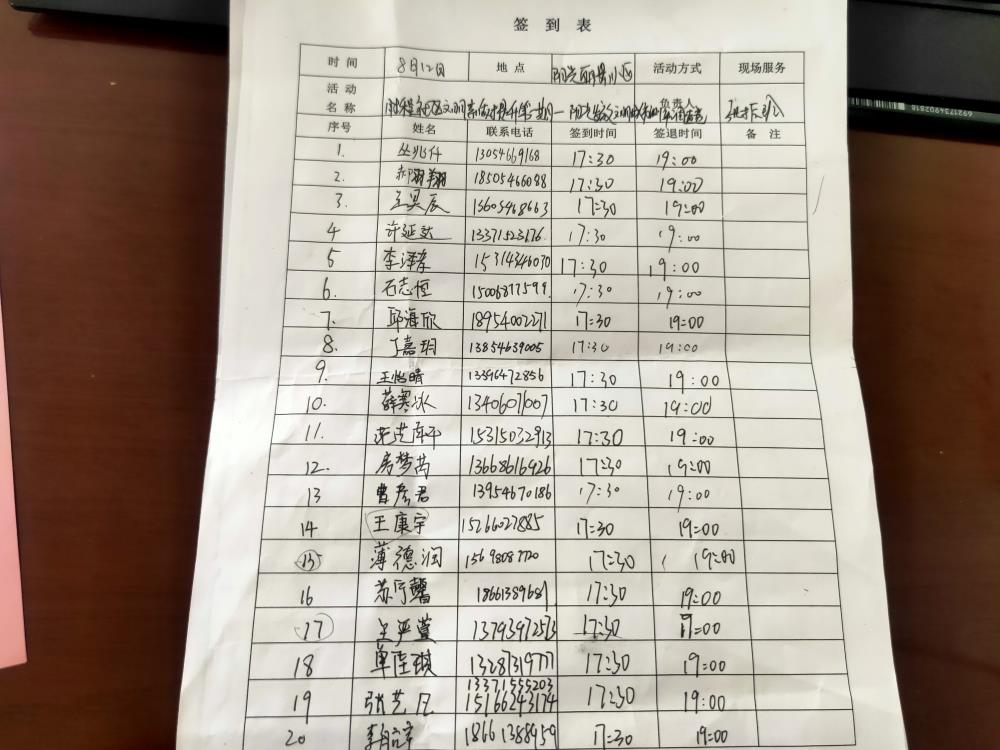 签到表
时间 8月12日 地点 阳光丽景小区 活动方式 现场服务
活动
名称 负责人
序号 姓名 联系电话 签到时间 签退时间 备注
1. 丛兆仟 13054669168 17:30 19:00
2. 郝翔翔 18505466088 17:30 19:00
3. 王昊辰 15605468663 17:30 19:00
4 许延达 13371523176 17:30 19:00
5 李泽孝 15314346070 17:30 19:00
6. 石志恒 15006877599 17:30 19:00
7. 邱海欣 18954002271 17:30 19:00
8. 丁嘉玥 13854639005 17:30 19:00
9. 王怡晴 13396472856 17:30 19:00
10. 薛寒冰 1340607007 17:30 19:00
11. 15315032913 17:30 19:00
12. 房梦芮 13668616926 17:30 19:00
13 曹彦君 13954670186 17:30 19:00
14 王康宇 15266027885 17:30 19:00
15 薄德润 15698087720 17:30 19:00
16 苏宇馨 18661389681 17:30 19:00
17 王严萱 13793972573 17:30 19:00
18 单佳琪 13287319777 17:30 19:00
13371555203
19 张艺凡 15166243174 17:30 19:00
20 18661388959 17:30 19:00
6921734900281